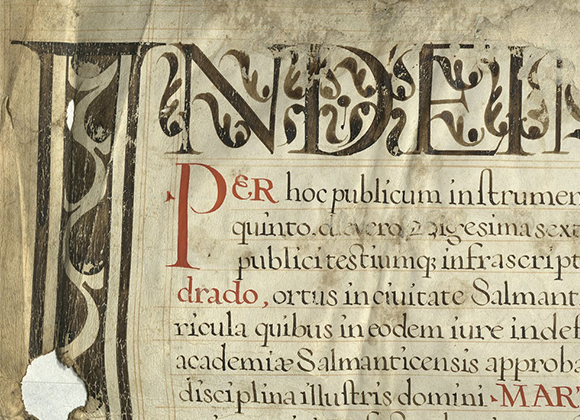 INDEI
PER hoc publicum instrumen
quinto. die vero Vigesima sext
publici testiumq; infrascript
drado, ortus in ciuitate Salmant
ricula quibus in eodem iure indef
academiæ Salmanticensis approba
disciplina illustris domini MAR